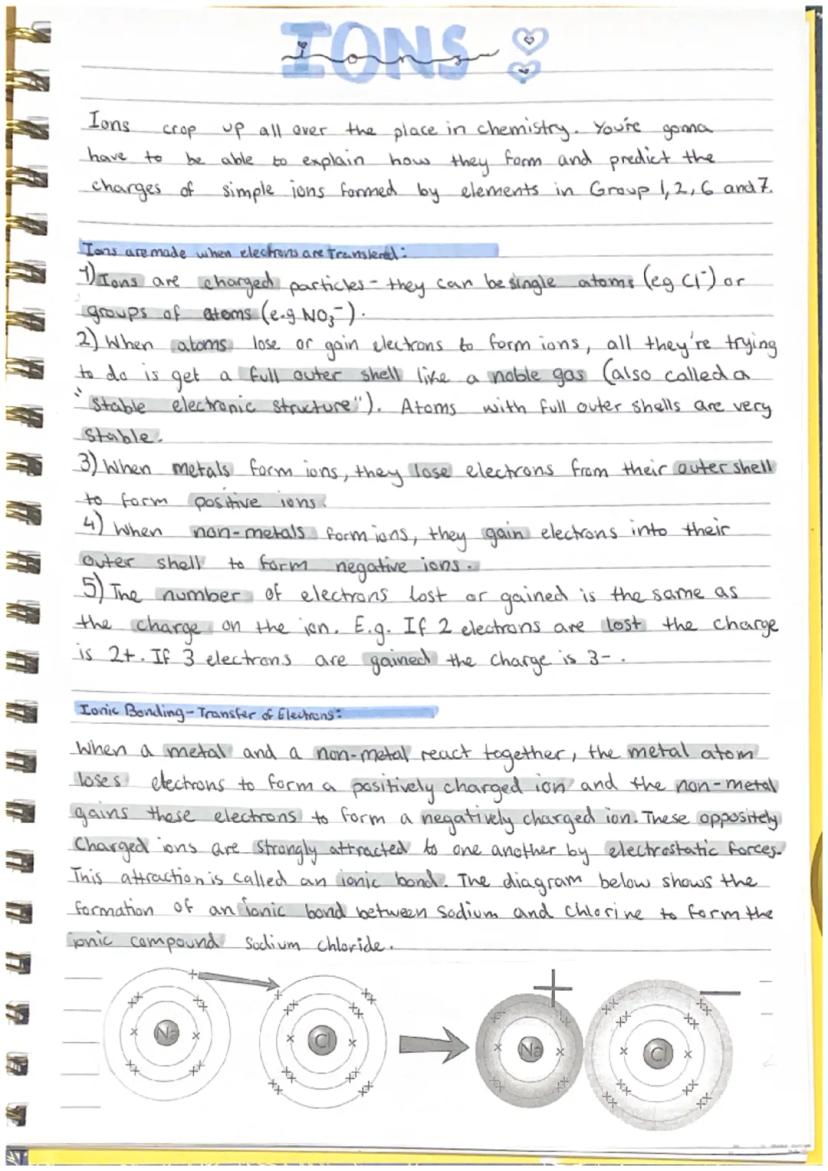 IONS
Ions
Ions crop up all over the place in chemistry. You're gonna
have to be able to explain how they form and predict the
charges of simple ions formed by elements in Group 1, 2, 6 and 7.
Ions are made when electrons are Transfered:
1) Ions are charged particles - they can be single atoms (eg Cl⁻) or
groups of atoms (e.g NO₃⁻).
2) When atoms lose or gain electrons to form ions, all they're trying
to do is get a full outer shell like a noble gas (also called a
"stable electronic structure"). Atoms with full outer shells are very
stable.
3) When metals form ions, they lose electrons from their outer shell
to form positive ions.
4) When non-metals form ions, they gain electrons into their
outer shell to form negative ions.
5) The number of electrons lost or gained is the same as
the charge on the ion. E.g. If 2 electrons are lost the charge
is 2+. If 3 electrons are gained the charge is 3-.
Ionic Bonding - Transfer of Electrons:
When a metal and a non-metal react together, the metal atom
loses electrons to form a positively charged ion and the non-metal
gains these electrons to form a negatively charged ion. These oppositely
Charged ions are strongly attracted to one another by electrostatic forces.
This attraction is called an ionic bond. The diagram below shows the
formation of an ionic bond between Sodium and Chlorine to form the
ionic compound Sodium chloride.
+ −
Na Cl Na Cl